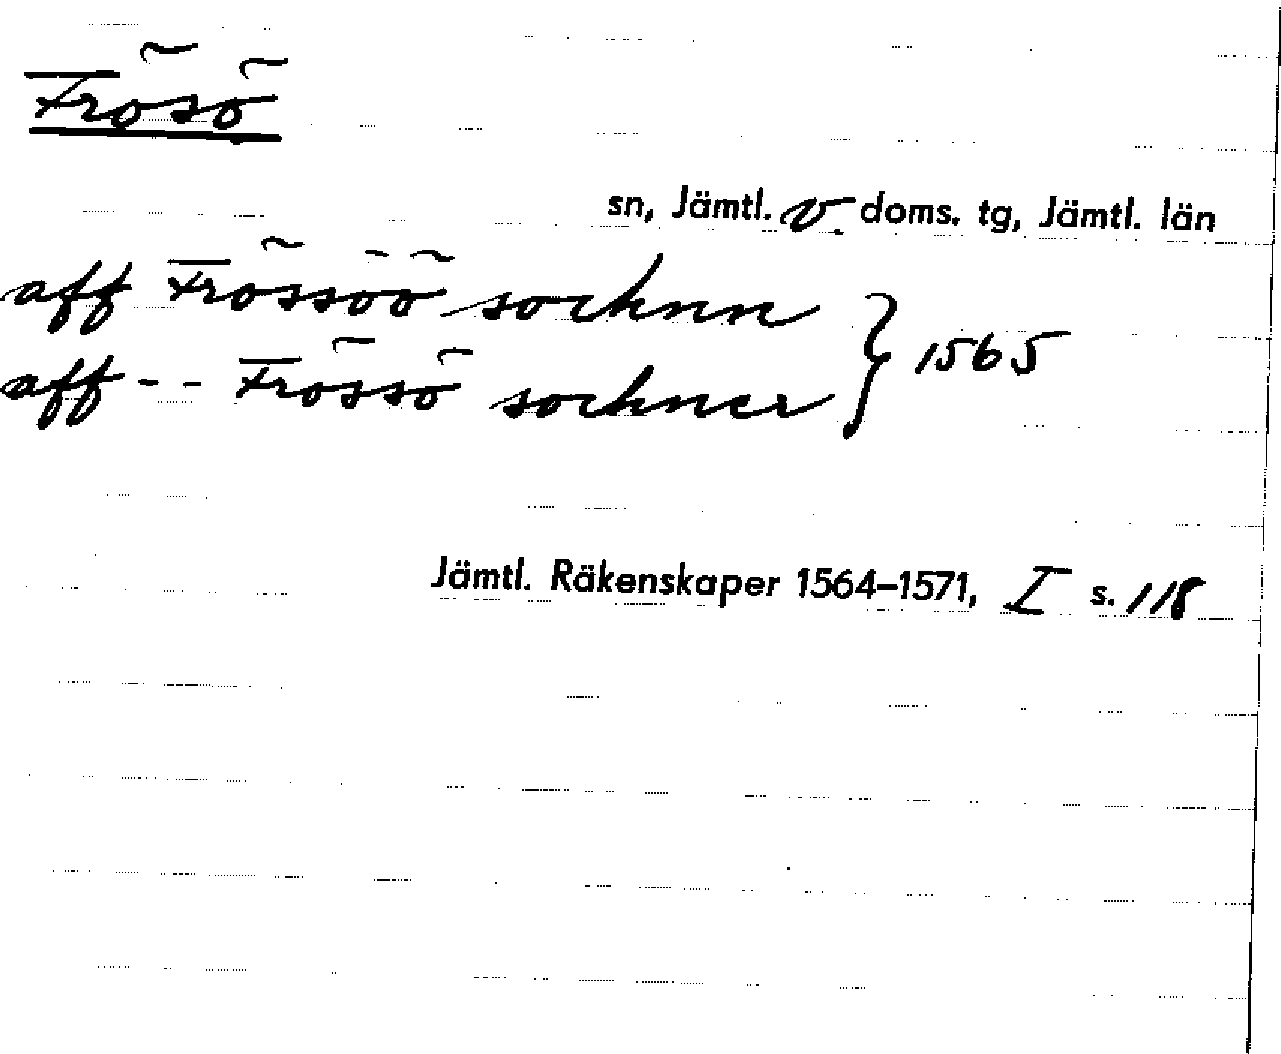 Frösö
sn, Jämtl. v. doms. tg, Jämtl. län
aff Frössöö socknn } 1565
aff - - Frössö sockner
Jämtl. Räkenskaper 1564–1571, I s. 118